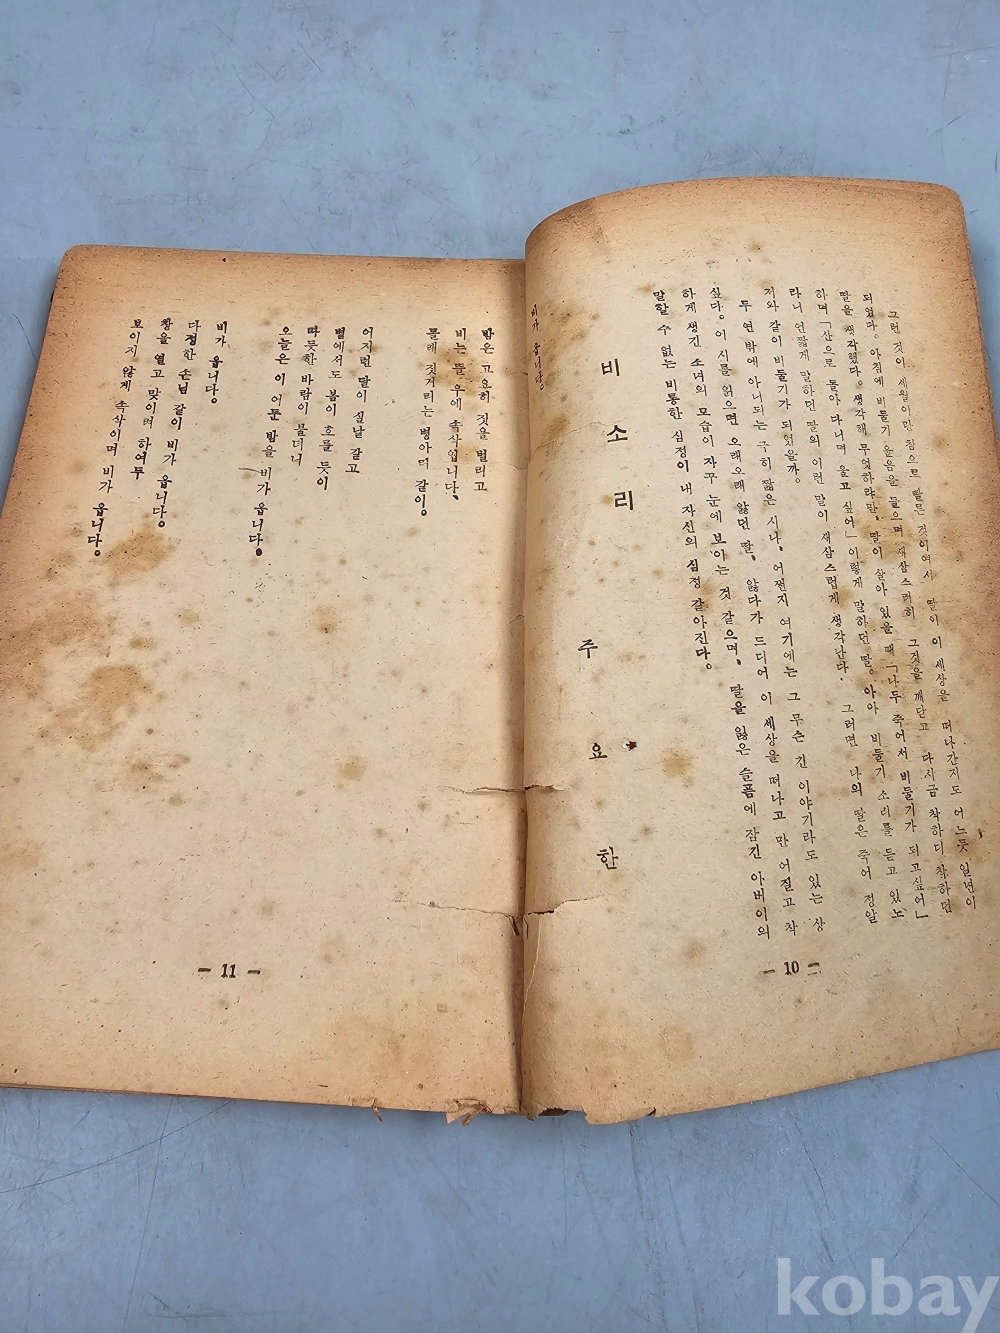 그런 것이 세월이란 참으로 빠른 것이여서 딸이 이 세상을 떠나간지도 어느듯 일년이
되었다. 아침에 비둘기 울음을 들으며 새삼스러히 그것을 깨닫고 다시금 착하디 착하던
딸을 생각했다. 생각해 무엇하랴만, 딸이 살아 있을 때 「나두 죽어서 비둘기가 되고싶어」
하며 「산으로 돌아 다니며 울고 싶어」 이렇게 말하던 딸. 아아 비둘기 소리를 듣고 있노
라니 언짢게 말하던 딸의 이런 말이 새삼스럽게 생각난다. 그러면 나의 딸은 죽어 정말
저와 같이 비둘기가 되었을까.
두 연 밖에 아니되는 극히 짧은 시나, 어쩐지 여기에는 그 무슨 긴 이야기라도 있는 상
싶다. 이 시를 읽으면 오래오래 앓던 딸, 앓다가 드디어 이 세상을 떠나고 만 어질고 착
하게 생긴 소녀의 모습이 자꾸 눈에 보이는 것 같으며, 딸을 잃은 슬픔에 잠긴 아버이의
말할 수 없는 비통한 심정이 내 자신의 심정 같아진다.
비 소 리
주 요 한
비가 옵니다.
— 10 —
밤은 고요히 짓을 벌리고
비는 뜰 우에 속삭입니다,
몰래 짓거리는 병아리 같이.
어지런 달이 실낱 같고
별에서도 봄이 흐를 듯이
따듯한 바람이 불더니
오늘은 이 어둔 밤을 비가 옵니다.
비가 옵니다.
다정한 손님 같이 비가 옵니다.
창을 열고 맞이려 하여두
보이지 않게 속삭이며 비가 옵니다.
— 11 —
kobay